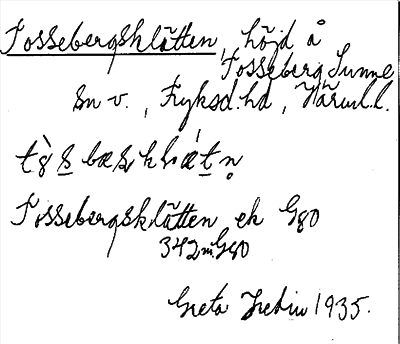 Fossebergsklätten, höjd å
Fosseberg, Sunne
sn v., Fryksd. hd, Värml. l.
Fossebergsklätten ek G90
342 m. G90
Greta Hedin 1935.